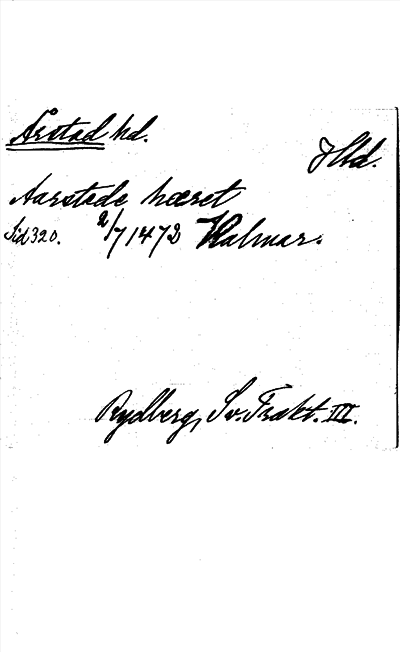 Årstad hd.
Hld.
Aarstede hæret
Sid 320. 2/7 1472 Halmar.
Rydberg, Sv. Trakt. III.